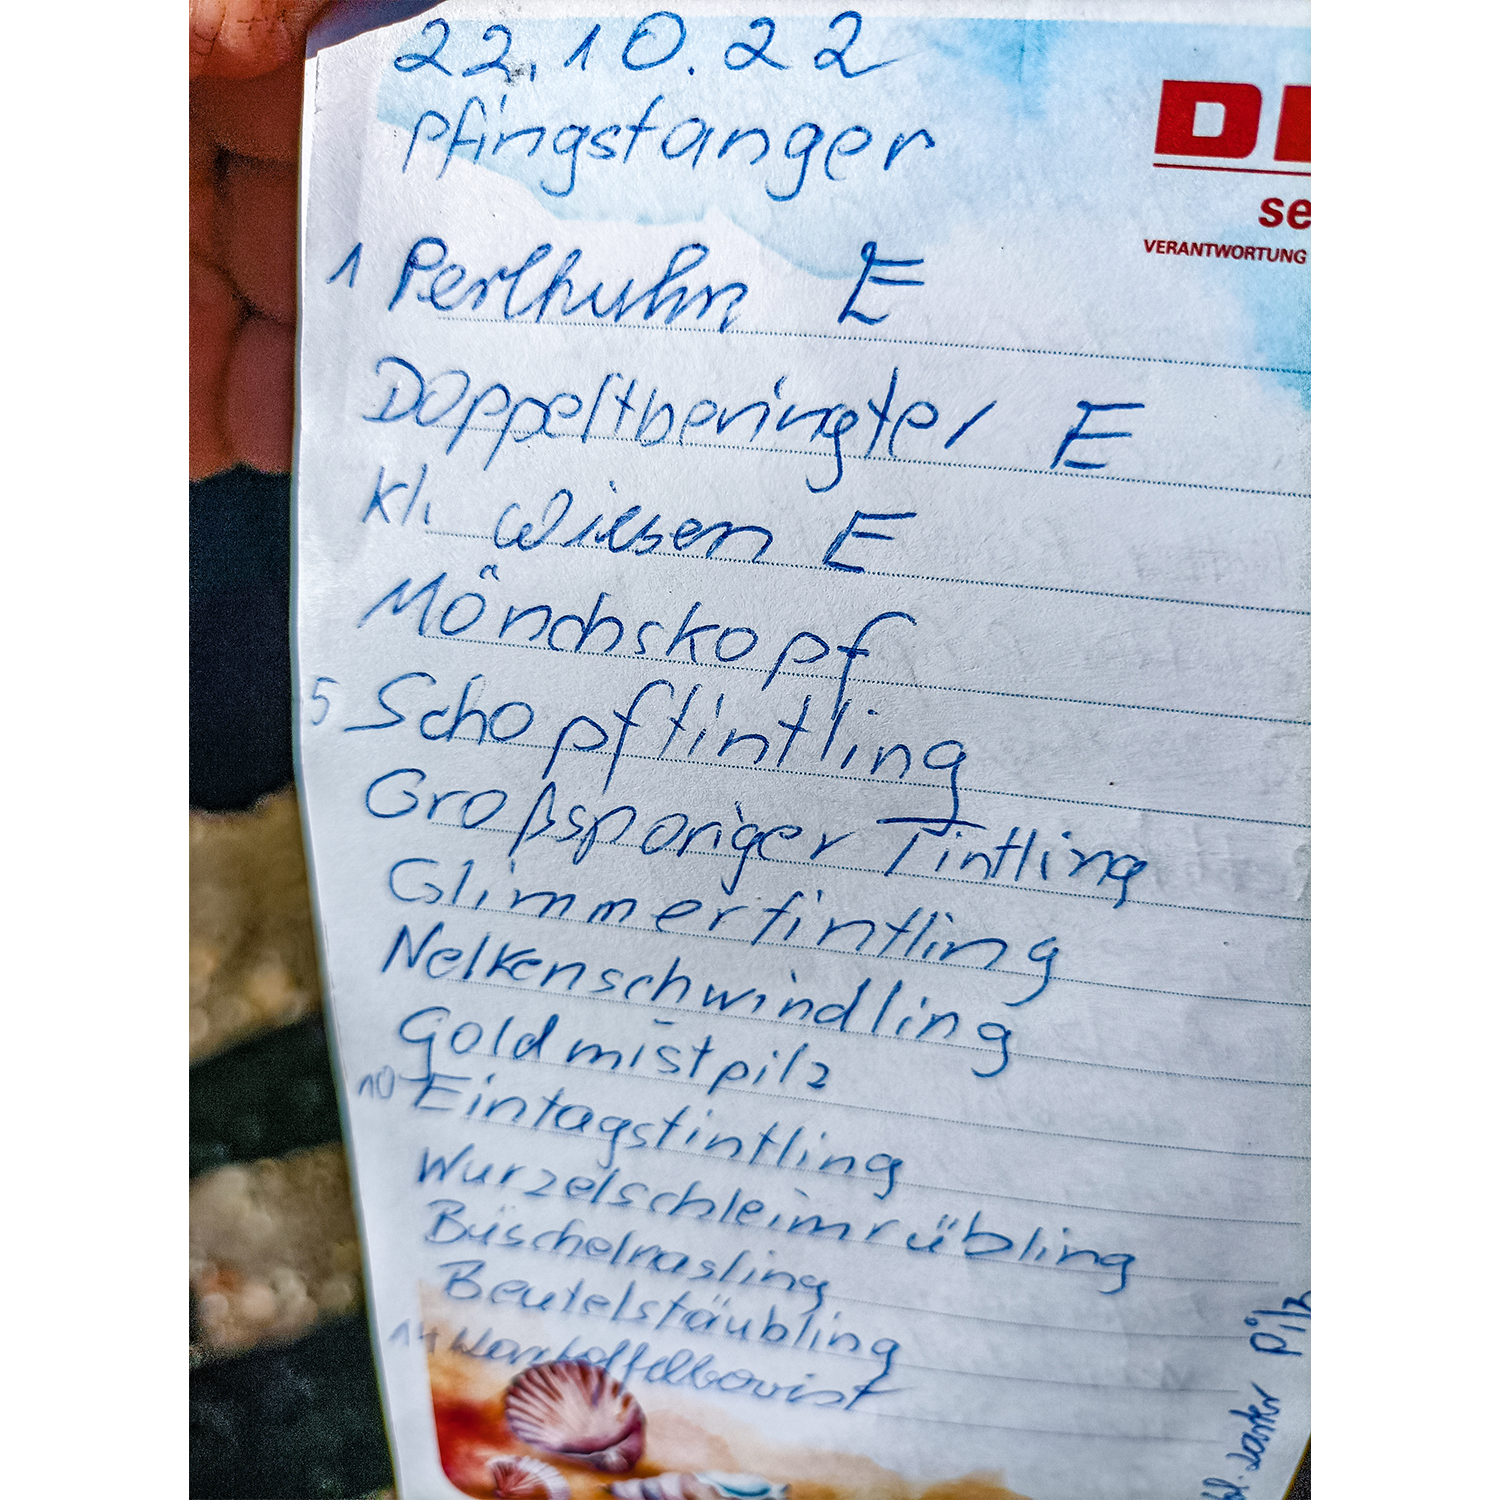 22.10.22
Pfingstanger
DI
se
VERANTWORTUNG
1 Perlhuhn E
Doppeltberingter E
Kl. Wiesen E
Mönchskopf
5 Schopftintling
Großsporiger Tintling
Glimmertintling
Nelkenschwindling
Goldmistpilz
10 Eintagstintling
Wurzelschleimrübling
Büschelrasling
Beutelstäubling
14 Kartoffelbovist
Pilz